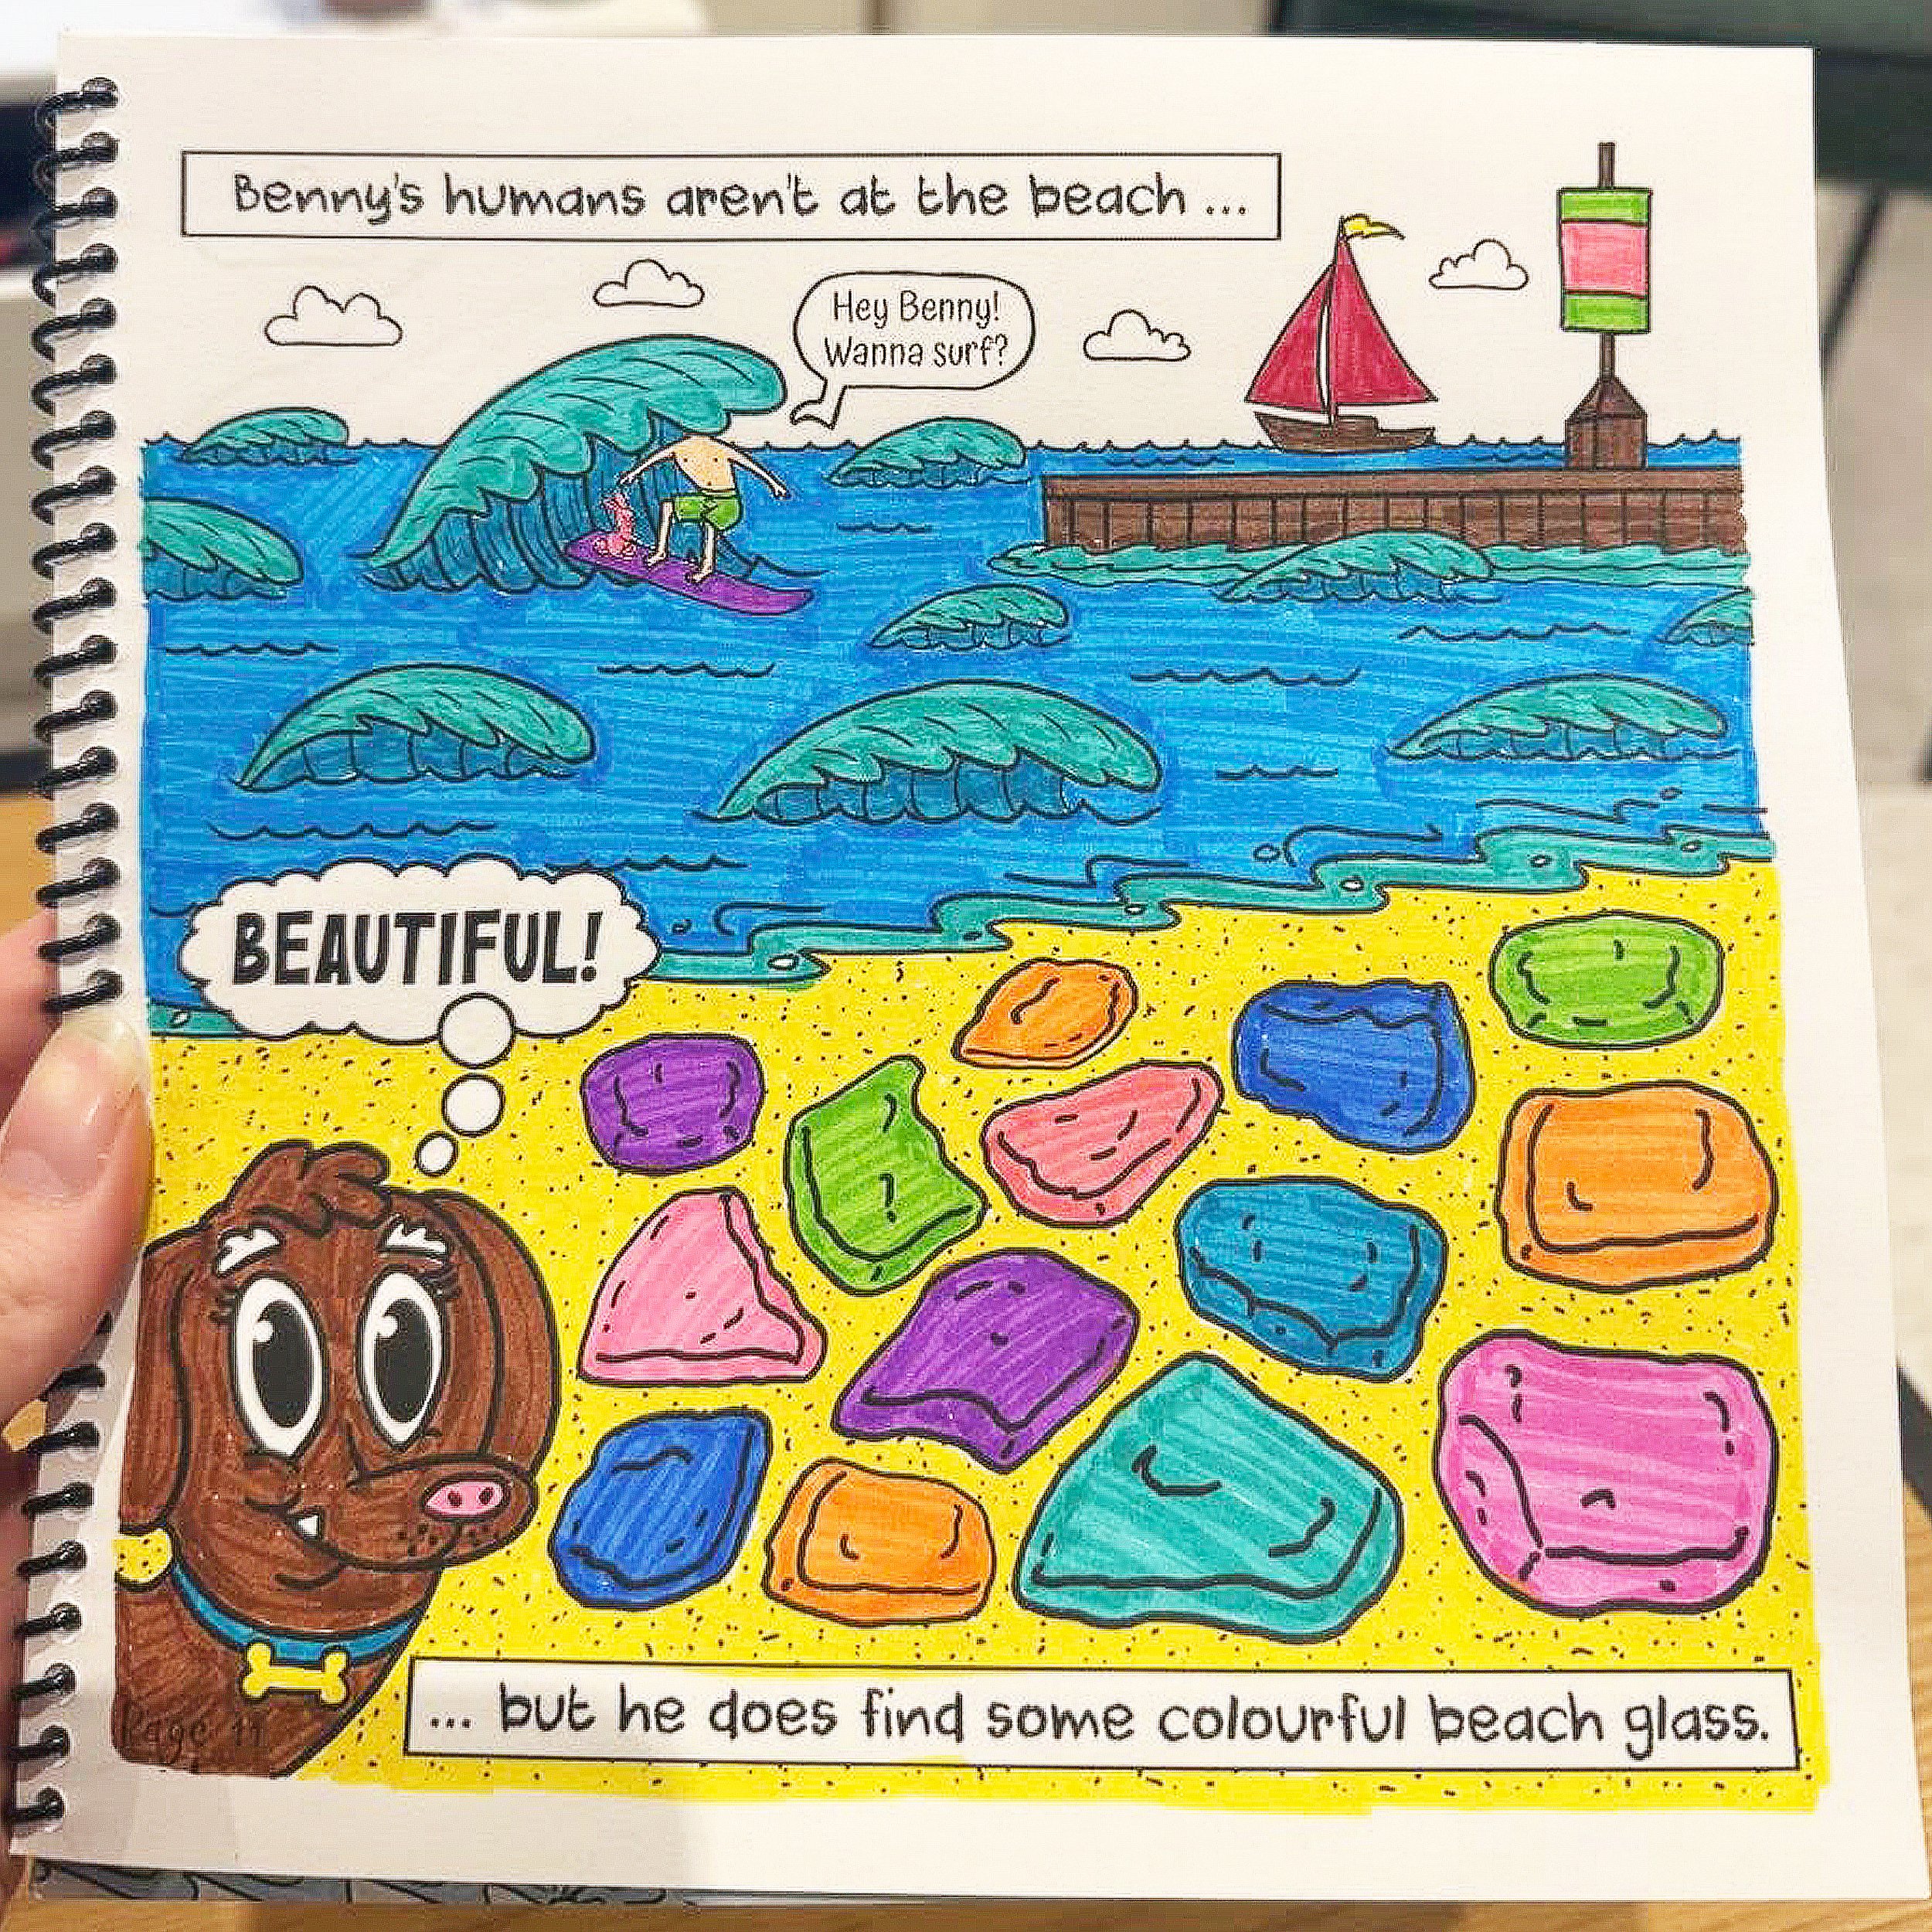 Benny's humans aren't at the beach ...
Hey Benny!
Wanna surf?
BEAUTIFUL!
... but he does find some colourful beach glass.
Page 11